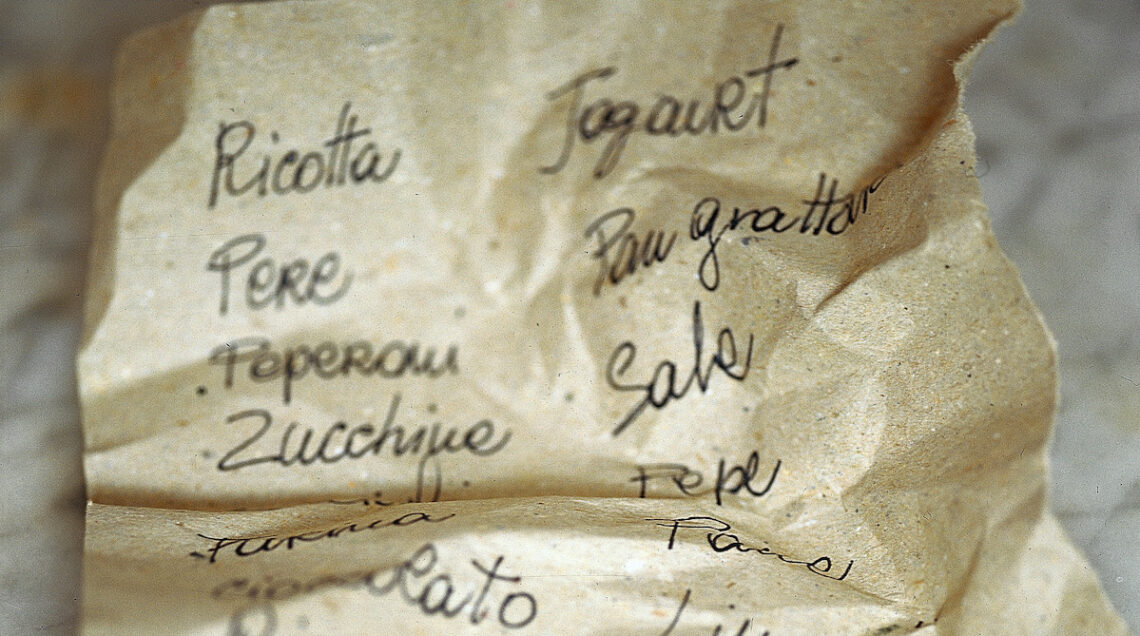 Ricotta
Pere
Peperoni
Zucchine
Farina
Jogaurt
Pan grattat
Sale
Pepe
Pane